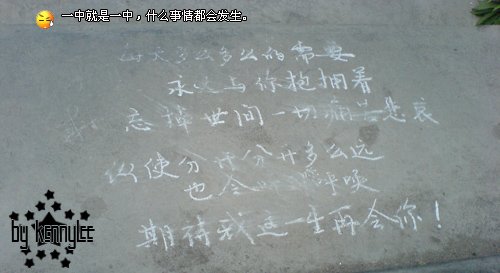 一中就是一中，什么事情都会发生。
每天多么多么的需要
永久与你抱拥着
忘掉世间一切痛苦悲哀
纵使分开分开多么远
也会呼唤
期待我这一生再会你！
by kennylee